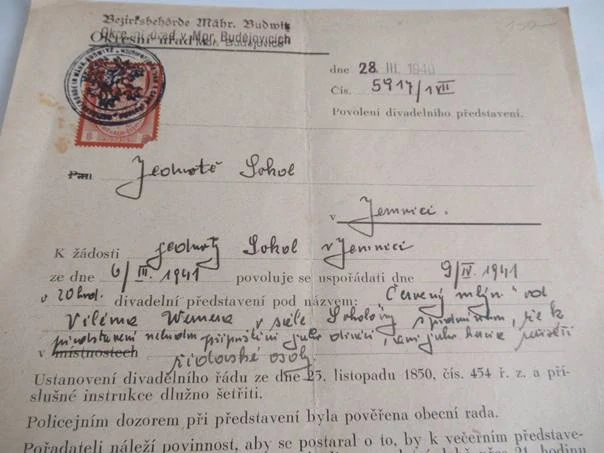 Bezirksbehörde Mähr. Budwitz
Okresní úřad v Mor. Budějovicích
dne 28. III. 1940
Čís. 5917/1 VII
Povolení divadelního představení.
Jednotě Sokol
v Jemnici.
K žádosti jednoty Sokol v Jemnici
ze dne 6/III. 1941 povoluje se uspořádati dne 9/IV. 1941
v 20 hod. divadelní představení pod názvem: "Červený mlýn" od
Viléma Wernera v sále Sokolovny s podmínkou, že k
představení nebudou připuštěni jako diváci, ani jako herci
v místnostech židovské osoby.
Ustanovení divadelního řádu ze dne 25. listopadu 1850, čís. 454 ř. z. a pří-
slušné instrukce dlužno šetřiti.
Policejním dozorem při představení byla pověřena obecní rada.
Pořadateli náleží povinnost, aby se postaral o to, by k večerním představe-